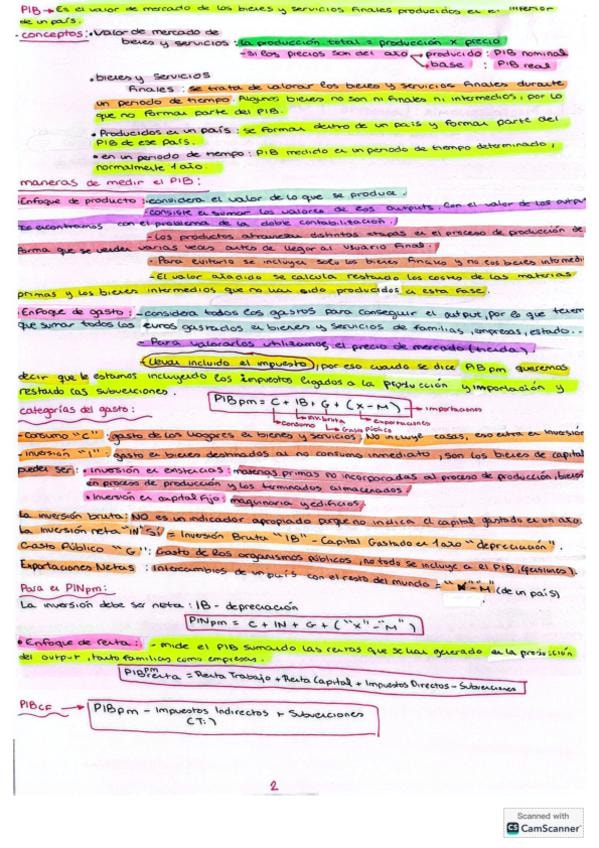 PIB → Es el valor de mercado de los bienes y servicios finales producidos en el interior
de un país.
- conceptos: • Valor de mercado de
bienes y servicios: la producción total = producción x precio
- Si los precios son del año → producido : PIB nominal
→ base : PIB real
• bienes y servicios
finales : se trata de valorar los bienes y servicios finales durante
un periodo de tiempo. Algunos bienes no son ni finales ni intermedios, por lo
que no forman parte del PIB.
• Producidos en un país : se forman dentro de un país y forman parte del
PIB de ese país.
• en un periodo de tiempo : PIB medido en un periodo de tiempo determinado,
normalmente 1 año.
maneras de medir el PIB :
• Enfoque de producto : - considera el valor de lo que se produce.
- consiste en sumar los valores de los outputs. Con el valor de los outputs
nos encontramos con el problema de la doble contabilización.
- Los productos atraviesan distintas etapas en el proceso de producción de
forma que se venden varias veces antes de llegar al usuario final.
- Para evitarlo se incluyen solo los bienes finales y no los bienes intermedi
- El valor añadido se calcula restando los costes de las materias
primas y los bienes intermedios que no han sido producidos en esta fase.
• Enfoque de gasto : - considera todos los gastos para conseguir el output, por lo que tenem
que sumar todos los euros gastados en bienes y servicios de familias, empresas, estado..
- Para valorarlos utilizamos el precio de mercado (tienda)
- Llevan incluido el impuesto, por eso cuando se dice PIBpm queremos
decir que le estamos incluyendo los impuestos ligados a la producción y importación y
restando las subvenciones.
PIBpm = C + IB + G + (X - M) → importaciones
categorías del gasto :
→ consumo → inv. bruta → Gasto Público → exportaciones
- Consumo "C" : gasto de los hogares en bienes y servicios. No incluye casas, eso entra en inversión
- Inversión "I" : gasto en bienes destinados al no consumo inmediato, son los bienes de capital
pueden ser : • Inversión en existencias : materias primas no incorporadas al proceso de producción, bienes
en proceso de producción y los terminados almacenados.
• Inversión en capital fijo : maquinaria y edificios.
La inversión bruta : NO es un indicador apropiado porque no indica el capital gastado en un año.
La inversión neta "IN" : = Inversión Bruta "IB" - Capital Gastado en 1 año "depreciación".
Gasto Público "G" : Gasto de los organismos públicos, no todo se incluye en el PIB,
Exportaciones Netas : Intercambios de un país con el resto del mundo = "X" - "M" (de un país)
Para el PINpm :
La inversión debe ser neta : IB - depreciación
PINpm = C + IN + G + ("X" - "M")
• Enfoque de renta : - mide el PIB sumando las rentas que se han generado en la producción
del output, tanto familias como empresas.
PIBpm renta = Renta Trabajo + Renta Capital + Impuestos Directos - Subvenciones
PIBcf → PIBpm - Impuestos Indirectos + Subvenciones
(Ti)
2
Scanned with
CS CamScanner